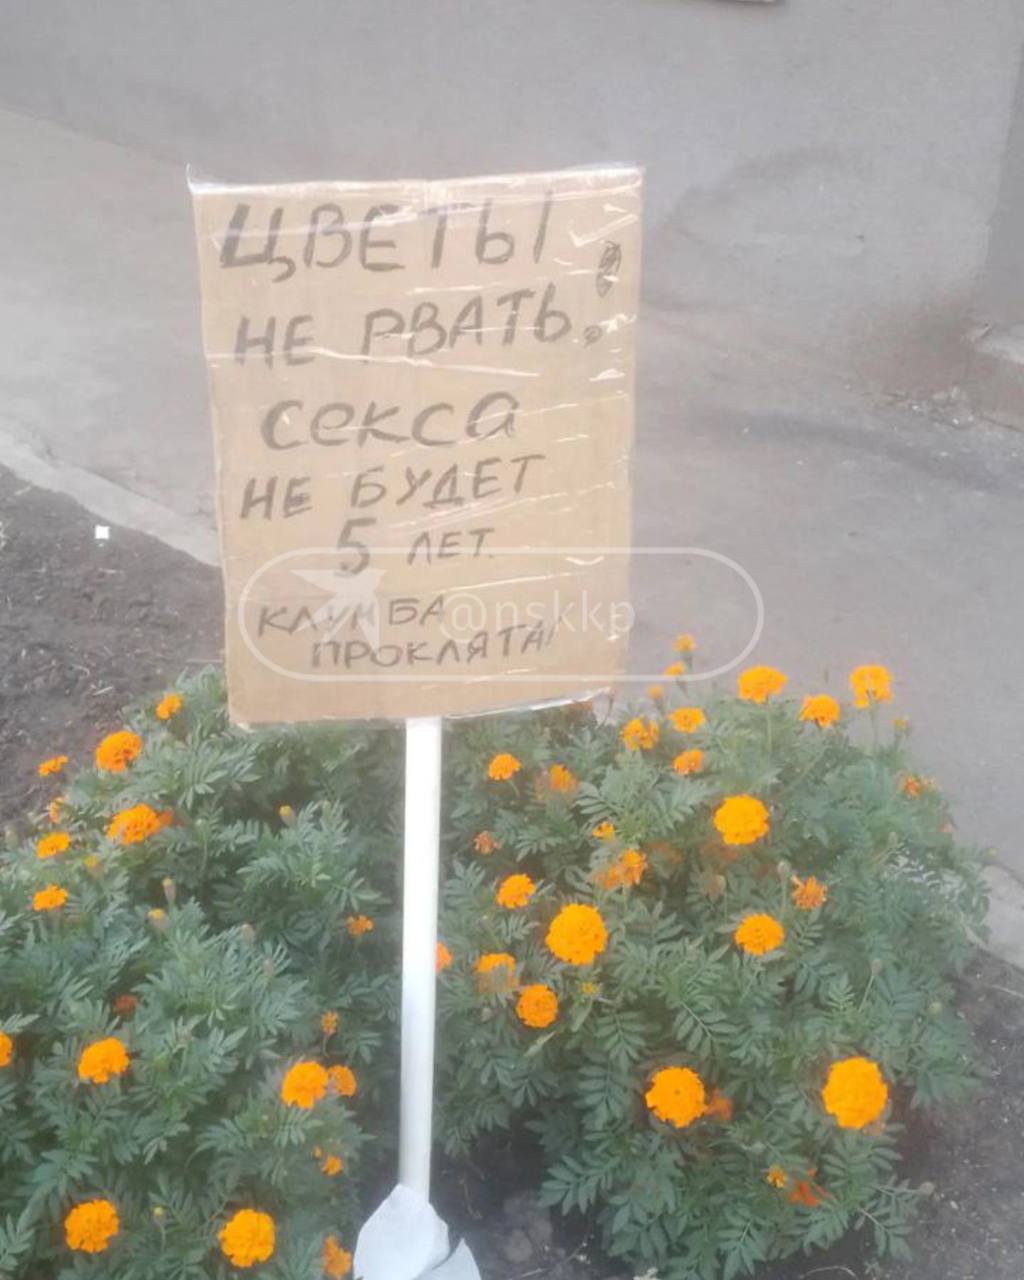 ЦВЕТЫ
НЕ РВАТЬ!
секса
НЕ БУДЕТ
5 ЛЕТ.
КЛУМБА
ПРОКЛЯТА!
@nskkp